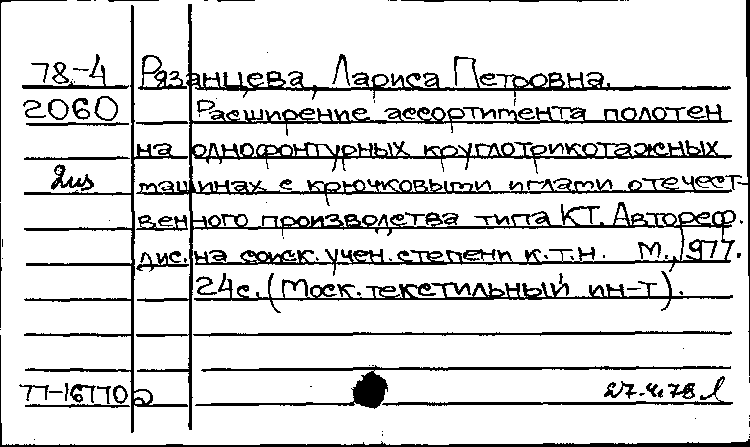 78-4 Рязанцева, Лариса Петровна.
2060 Расширение ассортимента полотен
на однофонтурных круглотрикотажных
2из машинах с крючковыми иглами отечест-
венного производства типа КТ. Автореф.
дис. на соиск. учен. степени к.т.н. М., 1977.
24с. (Моск. текстильный ин-т).
77-16770 27.4.78